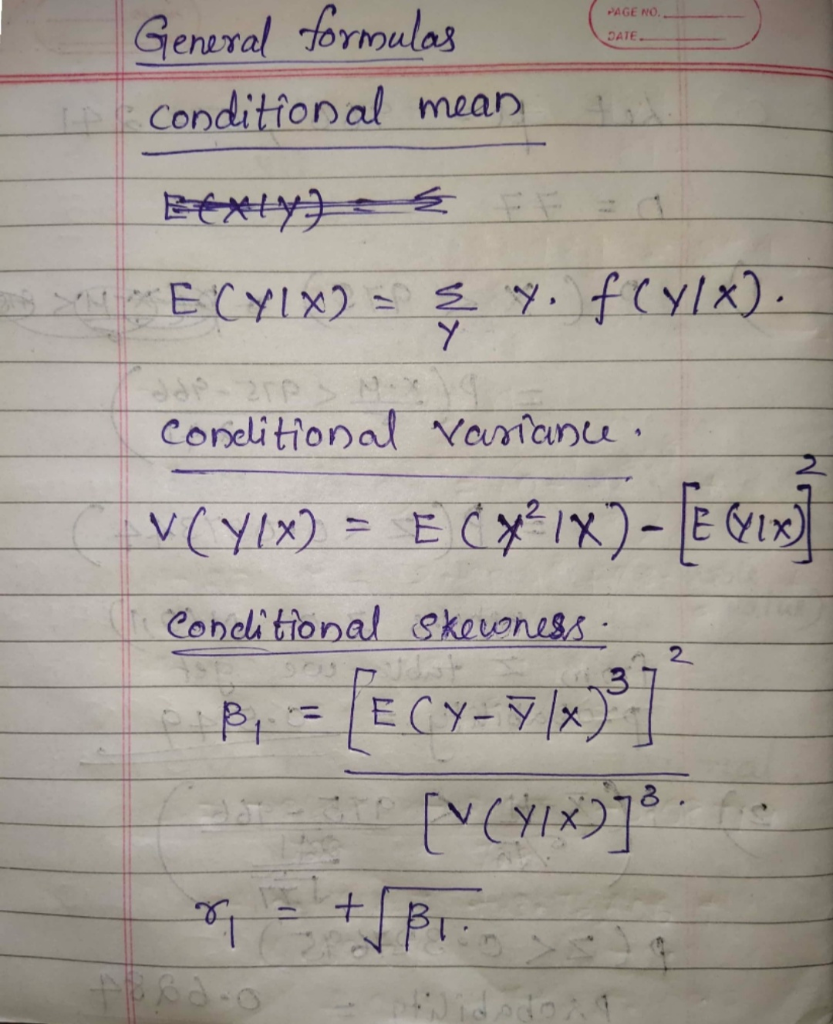 General formulas
PAGE NO.
DATE.
conditional mean
E(X|Y) = Σ
E(Y|X) = Σ Y. f(Y|X).
Y
conditional variance.
V(Y|X) = E(Y²|X) - [E(Y|X)]²
conditional skewness.
β₁ = [E(Y-Ȳ|X)³]²
[V(Y|X)]³.
γ₁ = +√β₁.